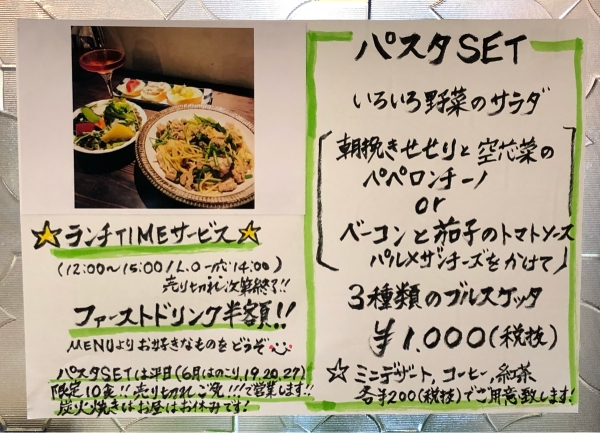 パスタSET
いろいろ野菜のサラダ
朝挽きせせりと空芯菜の
ペペロンチーノ
or
ベーコンと茄子のトマトソース
パルメザンチーズをかけて
3種類のブルスケッタ
¥1,000(税抜)
☆ミニデザート,コーヒー,紅茶
各¥200(税抜)でご用意致します!
☆ランチTIMEサービス☆
(12:00~15:00/L.O 一応14:00)
売り切れ次第終了!!
ファーストドリンク半額!!
MENUよりお好きなものをどうぞ
パスタSETは平日(6月はのこり,19,20,27)
限定10食!!売り切れご免!!!で営業します!!
炭火焼きはお昼はお休みです!